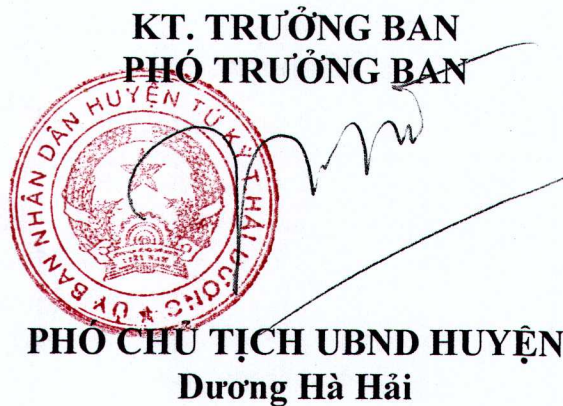 KT. TRƯỞNG BAN
PHÓ TRƯỞNG BAN
ỦY BAN NHÂN DÂN HUYỆN TỨ KỲ T HẢI DƯƠNG
VIỆT NAM
PHÓ CHỦ TỊCH UBND HUYỆN
Dương Hà Hải